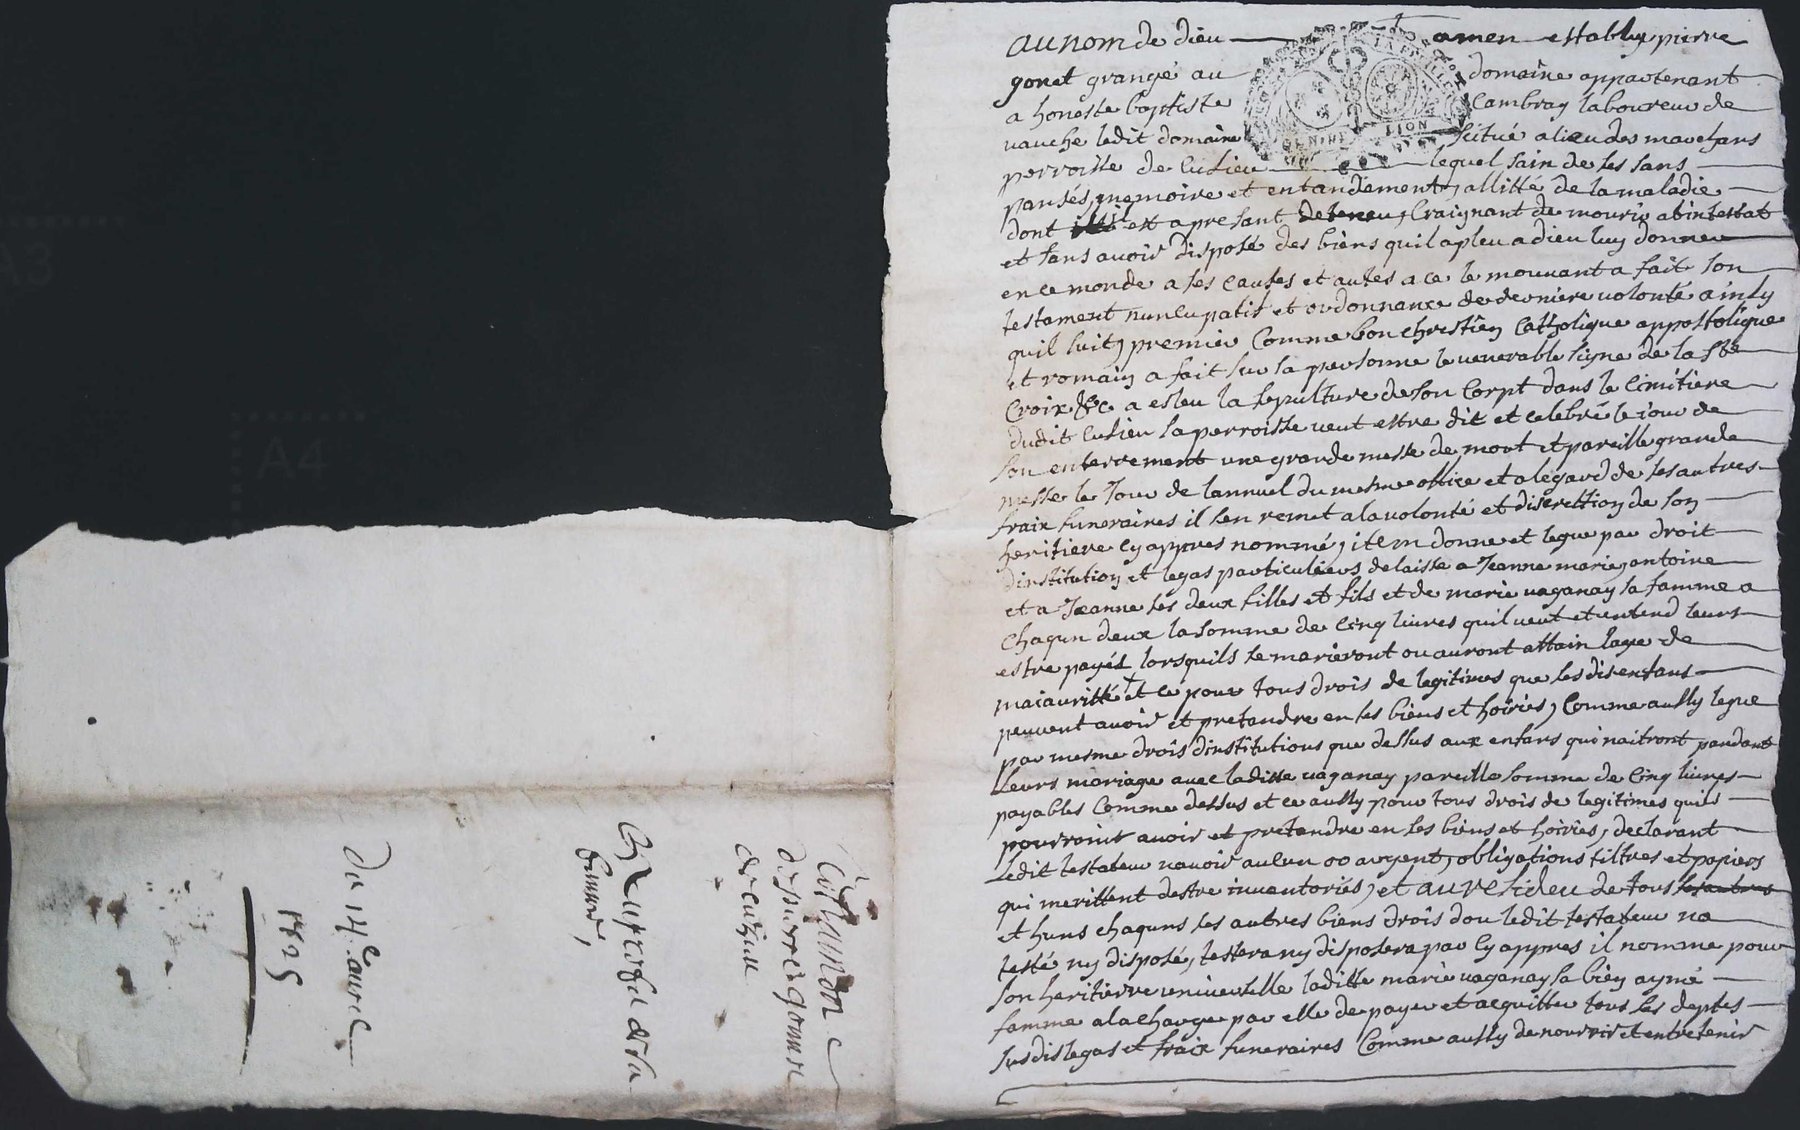 au nom de dieu amen estably pierre
gonet grangé au domaine appartenant
a honeste baptiste Cambray laboureur de
vauche ledit domaine scitué a lieu des marchans
perroisse de Cusieu lequel sain de ses sans
pansés, memoire et entandement, allitté de la maladie
dont il est apresant deteneu, Craignant de mourir abintestat
et sans avoir disposé des biens quil a pleu a dieu luy donner
en ce monde a ses causes et autes a ce le mouvant a fait son
testament nuncupatif et ordonnance de derniere volonté ainsy
quil suit, premier Comme bon chrestien Catholique appostolique
et romain a fait sur sa personne le venerable signe de la Ste
Croix &c a esleu la sepulture de son Corpt dans le Cimitiere
dudit Cusieu sa perroisse veut estre dit et celebré le jour de
son enterrement une grande messe de mort et pareille grande
messe le Jour de lannuel du mesme office et a legard de ses autres
fraix funeraires il sen remet a la volonté et discrettion de son
heritiere cy appres nommé, item donne et legue par droit
dinstitution et legas particuliers delaisse a Jeanne marie, antoine
et a Jeanne ses deux filles et fils et de marie vaganay sa famme a
Chaqun deux la somme de Cinq livres quil veut et entend leurs
estre payés lorsquils se marieront ou auront attain lage de
maiauritté et ce pour tous drois de legitimes que lesdis enfans
peuvent avoir et pretandre en ses biens et hoiries, Comme aussy legue
par mesme drois dinstitutions que dessus aux enfans qui naitront pandant
leurs mariage avec laditte vaganay pareille somme de Cinq livres
payables Comme dessus et ce aussy pour tous drois de legitimes quils
pourroint avoir et pretandre en ses biens et hoiries, declarant
ledit testateur navoir aucun or argent, obligations tiltres et papiers
qui merittent destre inventoriés, et au resideu de tous les autres
et huns chaquns ses autres biens drois dou ledit testateur na
testé ny disposé, testera ny disposera par cy appres il nomme pour
son heritierre universelle laditte marie vaganay sa bien aymé
famme a la charge par elle de payer et acquitter tous ses deptes
susdis legas et fraix funeraires Comme aussy de nourrir et entretenir
de pierre gonnet
de Cuzieu
Au profit de sa
femme,
Du 14e avril
1725